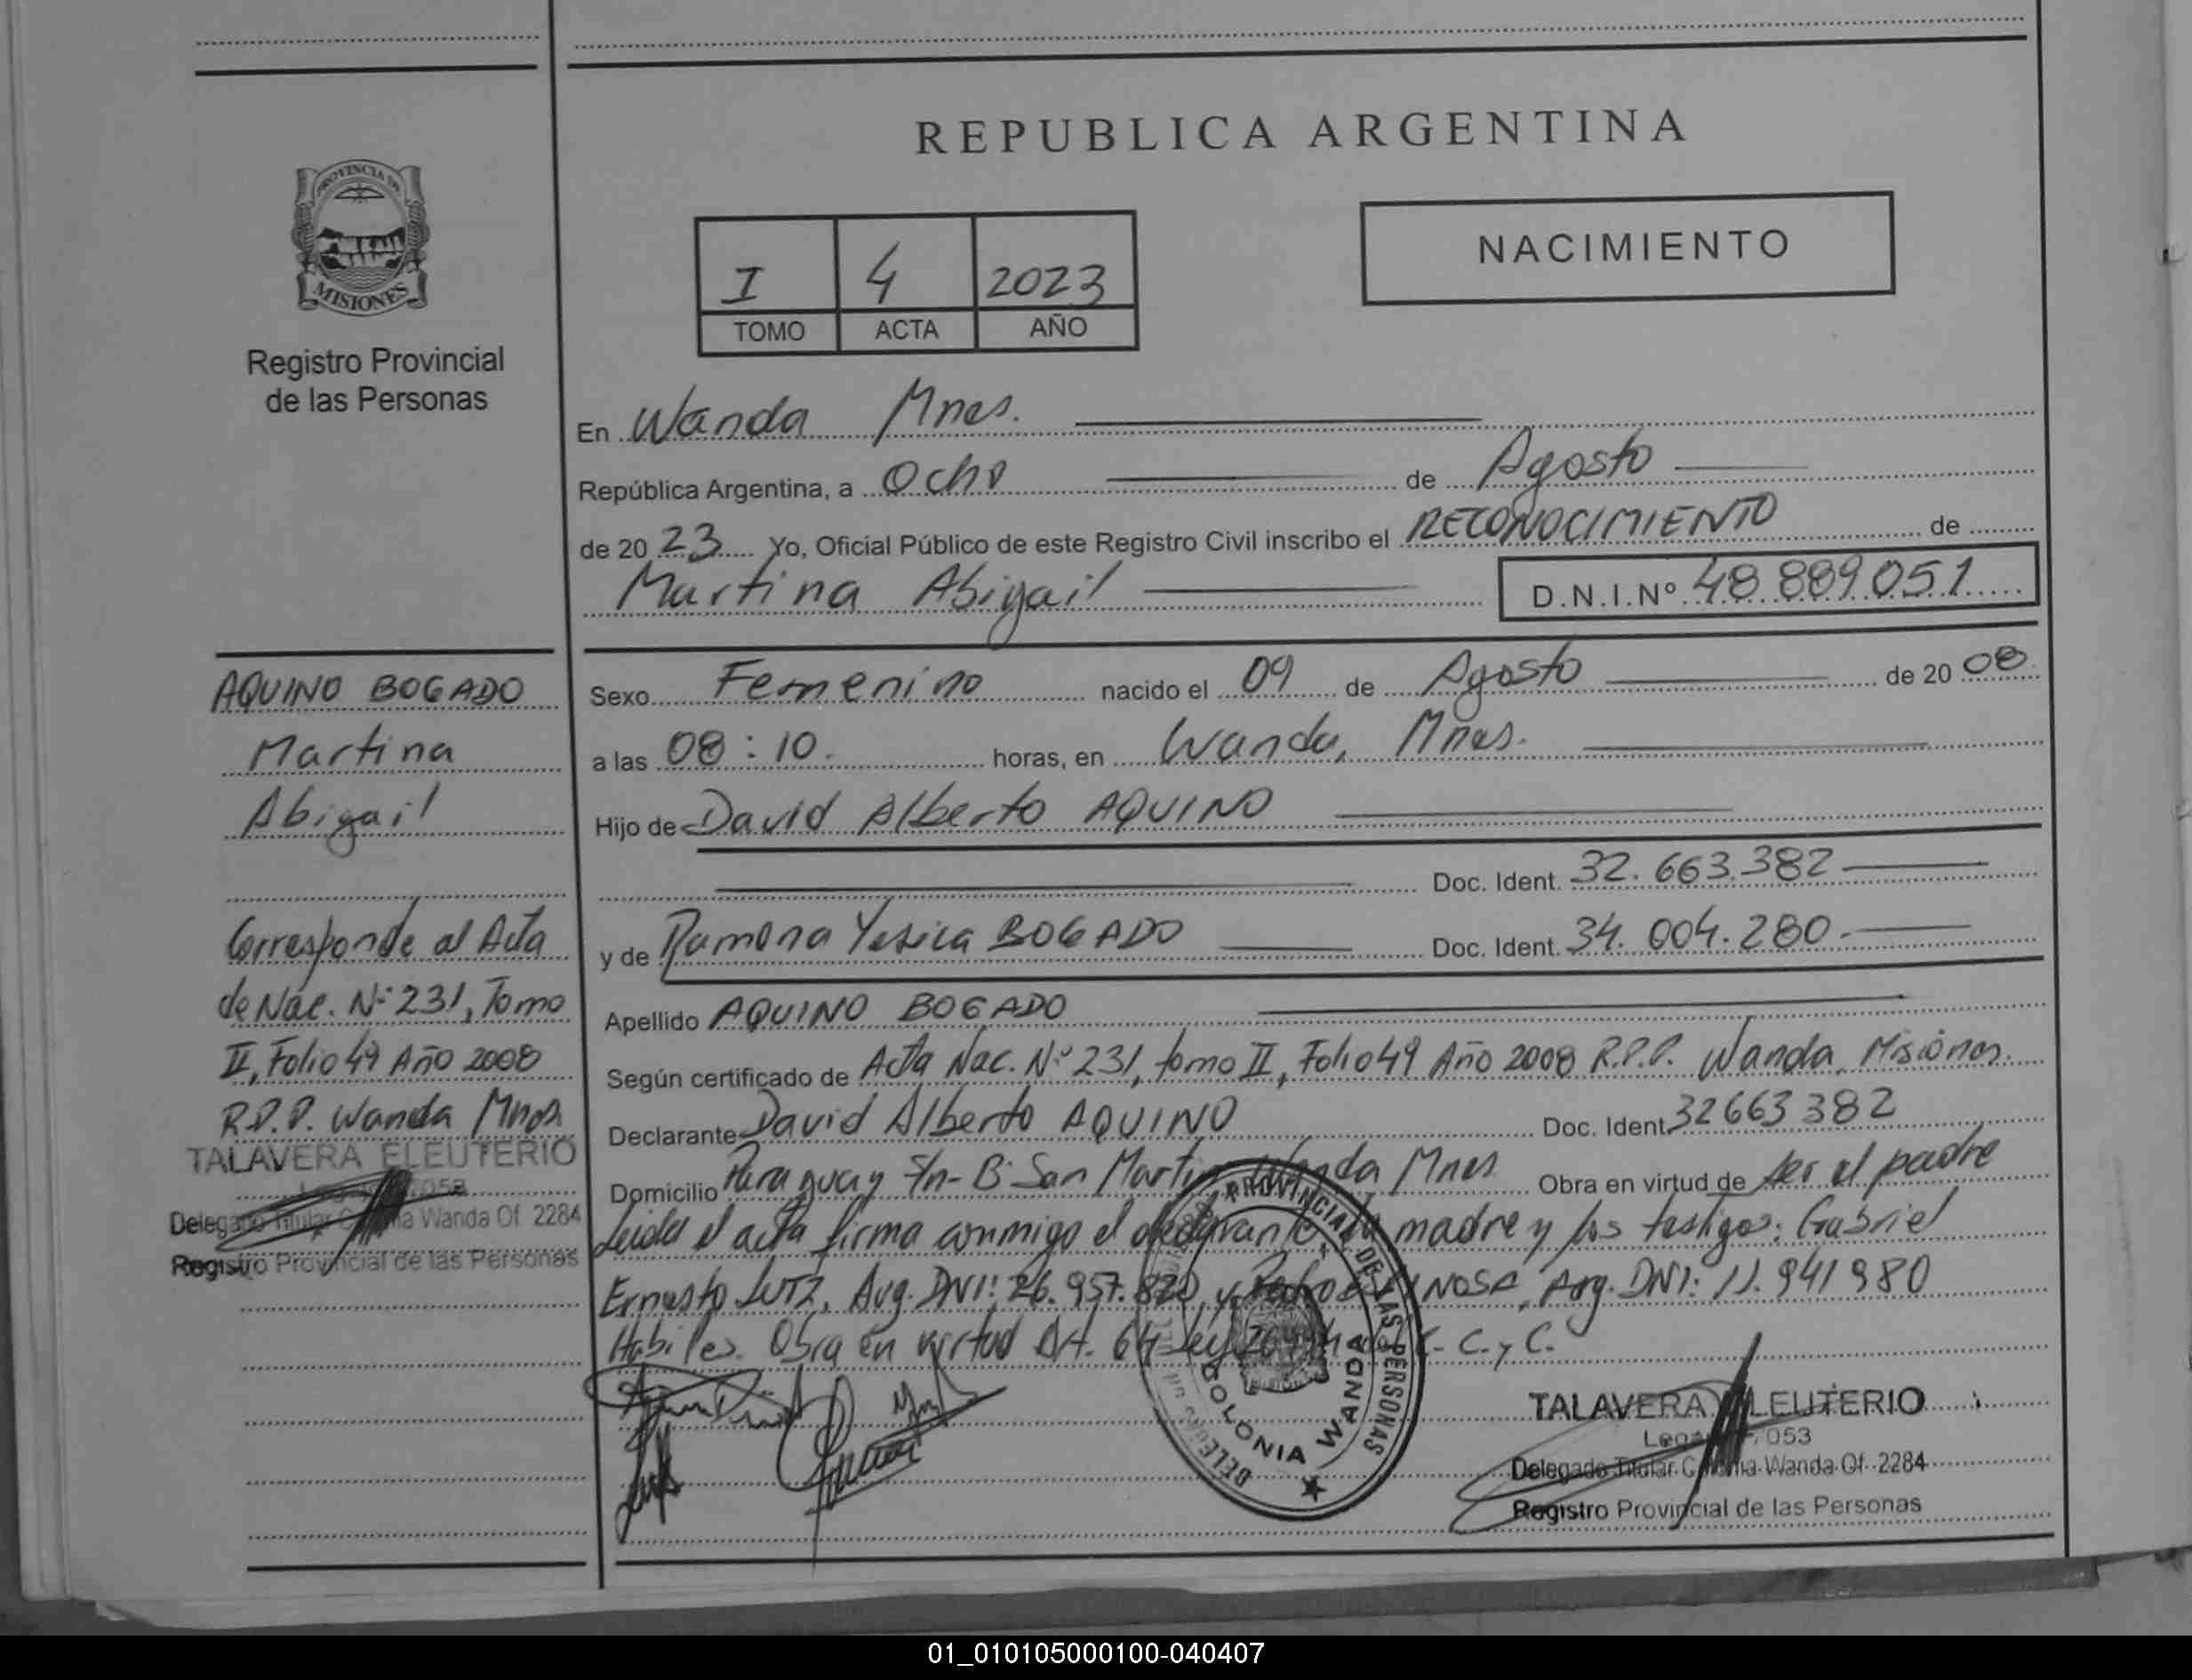 REPUBLICA ARGENTINA
PROVINCIA DE
MISIONES
Registro Provincial
de las Personas
I 4 2023
TOMO ACTA AÑO
NACIMIENTO
En Wanda Mnes.
República Argentina, a Ocho de Agosto
de 20 23 Yo, Oficial Público de este Registro Civil inscribo el RECONOCIMIENTO de
Martina Abigail D.N.I.Nº 48.889.051
AQUINO BOGADO
Martina
Abigail
Corresponde al Acta
de Nac. Nº 231, Tomo
II, Folio 49 Año 2008
R.P.P. Wanda Mnes
TALAVERA ELEUTERIO
Delegado Titular Colonia Wanda Of. 2284
Registro Provincial de las Personas
Sexo Femenino nacido el 09 de Agosto de 20 08
a las 08:10. horas, en Wanda, Mnes.
Hijo de David Alberto AQUINO
Doc. Ident. 32.663.382
y de Ramona Yesica BOGADO Doc. Ident. 34.004.280.-
Apellido AQUINO BOGADO
Según certificado de Acta Nac. Nº 231, tomo II, Folio 49 Año 2008 R.P.P. Wanda, Misiones.
Declarante David Alberto AQUINO Doc. Ident. 32663382
Domicilio Paraguay S/n- Bº San Martin Wanda Mnes Obra en virtud de ser el padre
Leida el acta firma conmigo el declarante, la madre y los testigos: Gabriel
Ernesto LUTZ, Arg. DNI: 26.957.820, y Pedro ESPINOSA, Arg. DNI: 11.941980
Habiles. Obra en virtud Art. 64 Ley 26994 del C. C. y C.
PROVINCIAL DE LAS PERSONAS
COLONIA WANDA
TALAVERA ELEUTERIO
053
Delegado Titular Colonia Wanda Of. 2284
Registro Provincial de las Personas
01_010105000100-040407